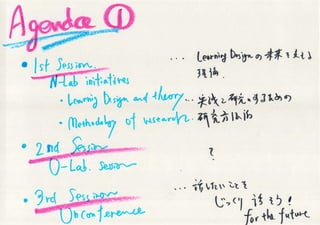 Agenda ①
• 1st Session ... Learning Designの未来を支える
N-Lab initiatives 理論
• Learning Design and theory
• Methodology of research ... 実践と研究をするための
研究方法論
• 2nd Session ?
O-Lab. session
• 3rd Session ... 話したいことを
Unconference じっくり話そう!
for the future